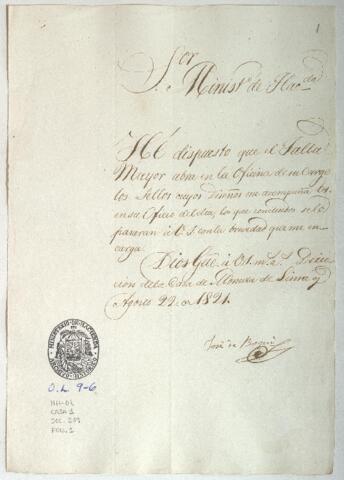 1
Sor
Minist.o de Hac.da
Hé dispuesto que el Talla
Mayor abra en la Oficina de su cargo
los Sellos cuyos diseños me acompaña Us.
en su Oficio del dia, los que concluidos se le
pasaran à V.S. con la brevedad que me en
carga.
Dios Gūe. à V.S. m.s a.s Direc
cion de la Casa de Moneda de Lima y
Agosto 22 de 1821.
José de
MINISTERIO DE HACIENDA
ARCHIVO HISTORICO
O.L. 9-6
MH-OL
CAJA 1
DOC. 279
FOL. 1